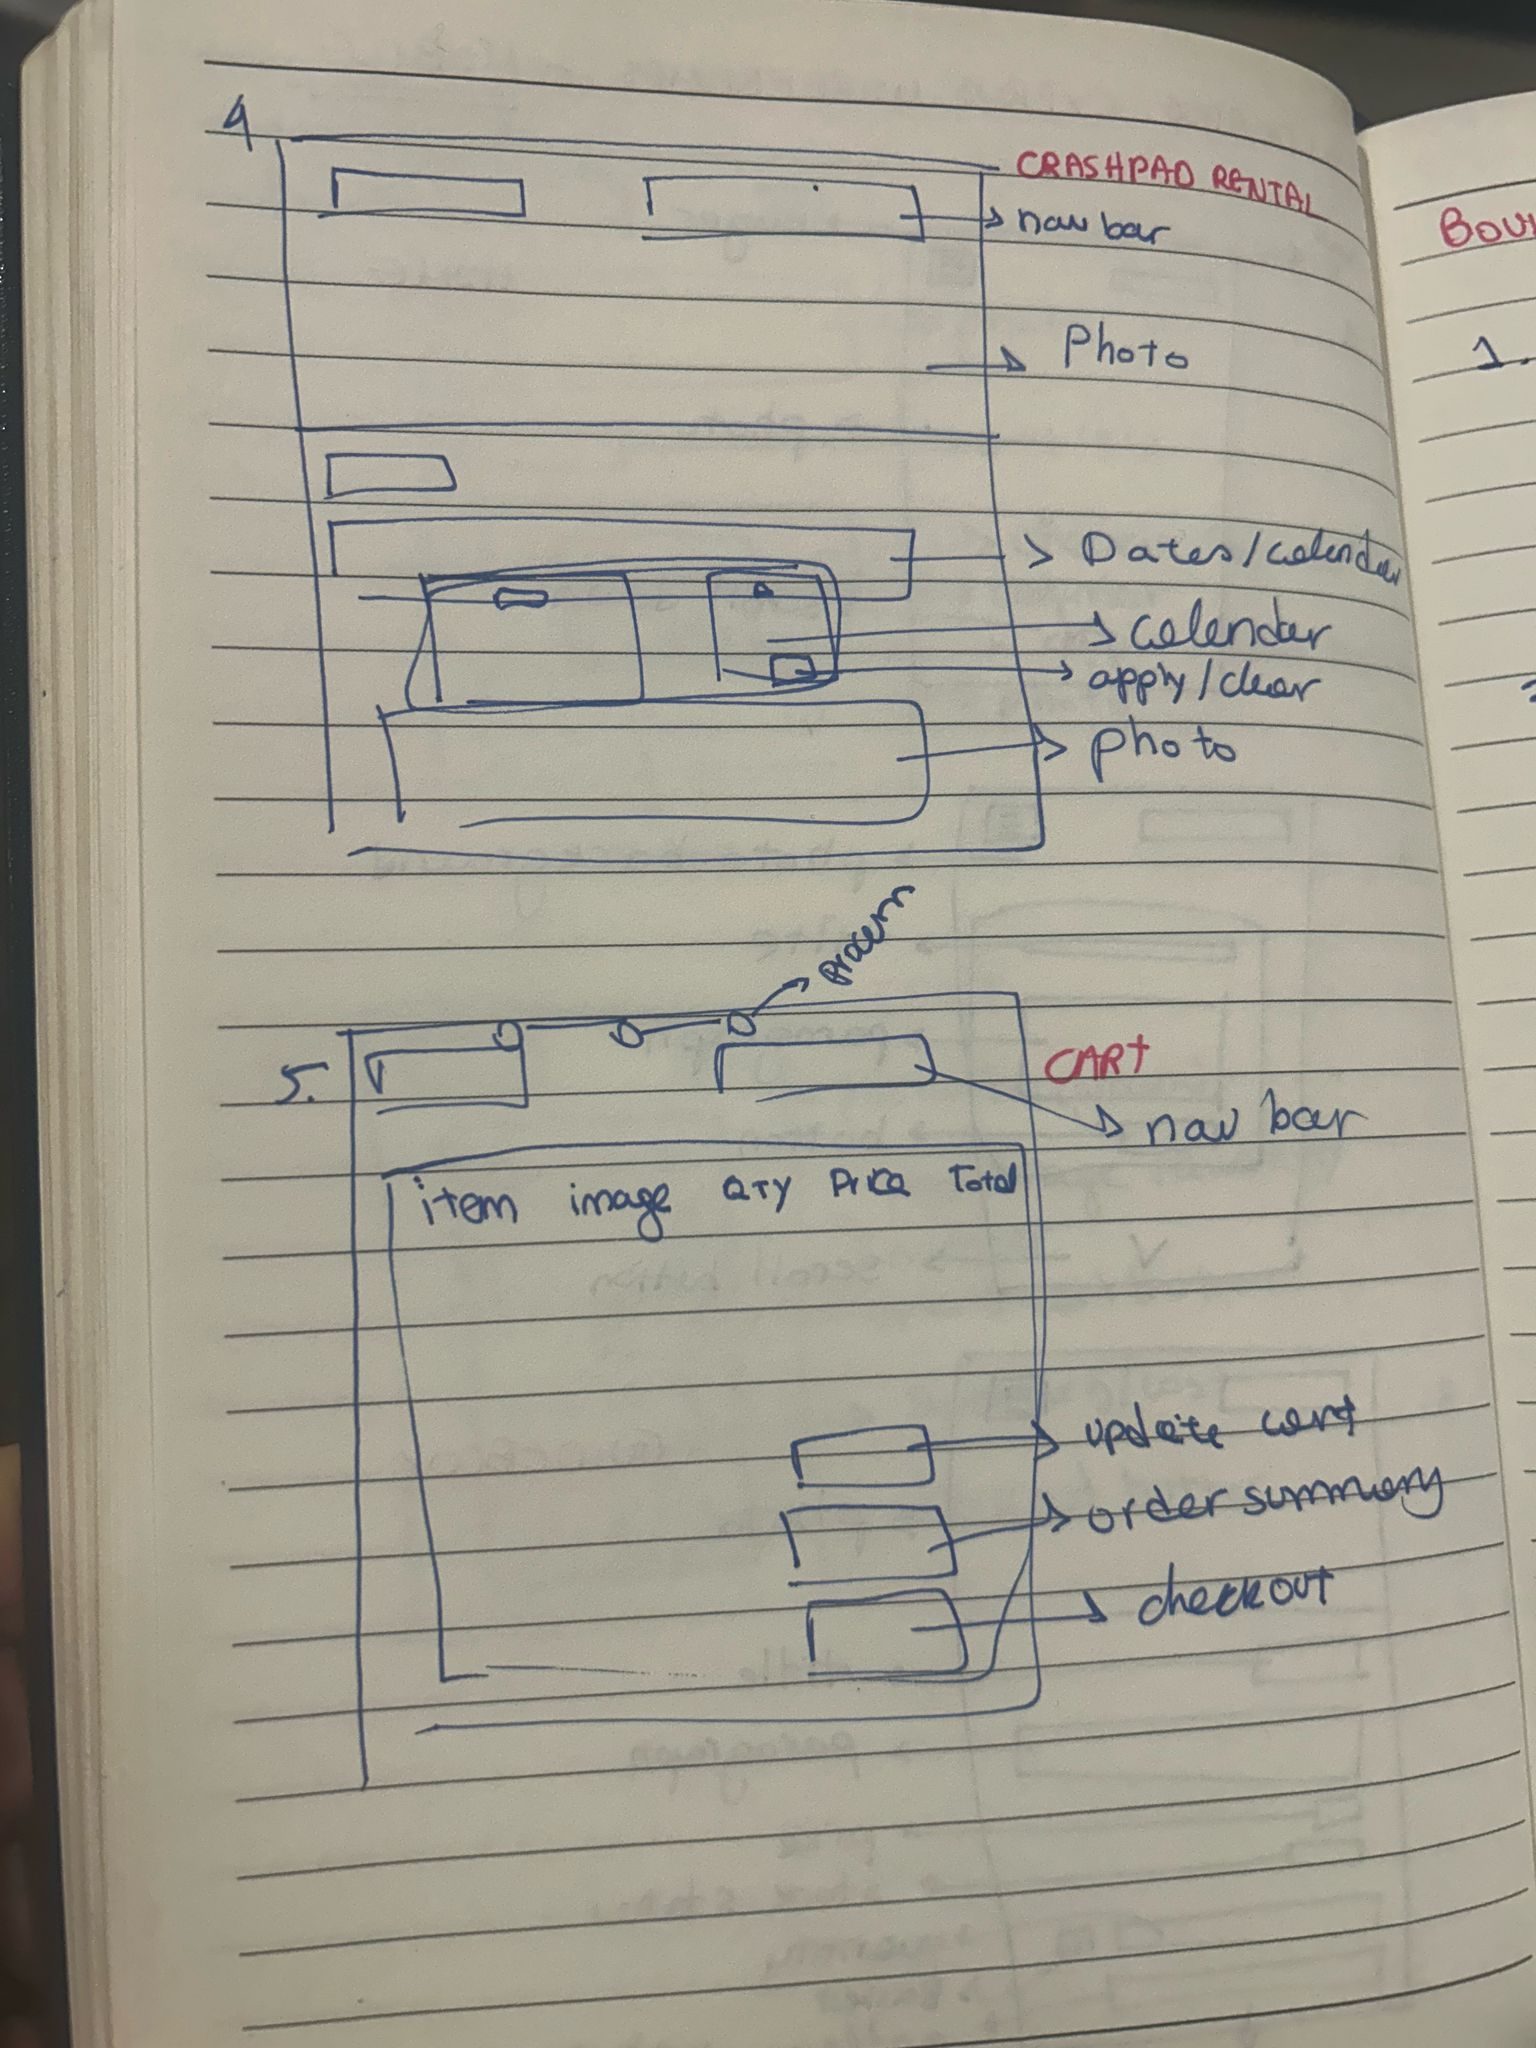 4
CRASHPAD RENTAL
nav bar
Photo
Dates/calendar
calendar
apply/clear
photo
5.
CART
nav bar
item image QTY Price Total
update cart
order summary
checkout
1.